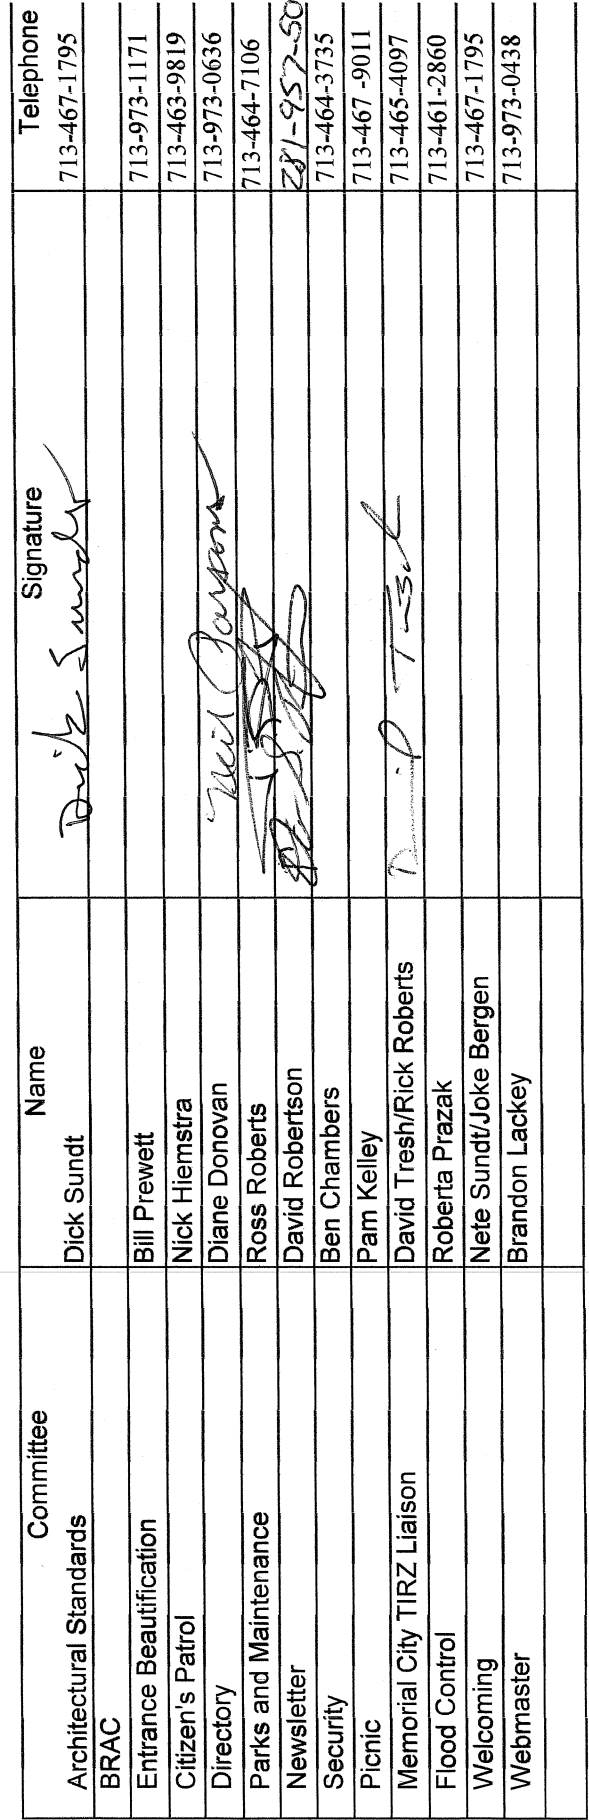 Committee Name Signature Telephone
Architectural Standards Dick Sundt Dick Sundt 713-467-1795
BRAC
Entrance Beautification Bill Prewett 713-973-1171
Citizen's Patrol Nick Hiemstra 713-463-9819
Directory Diane Donovan Neil Parsons 713-973-0636
Parks and Maintenance Ross Roberts 713-464-7106
Newsletter David Robertson 281-957-50
Security Ben Chambers 713-464-3735
Picnic Pam Kelley 713-467 -9011
Memorial City TIRZ Liaison David Tresh/Rick Roberts 713-465-4097
Flood Control Roberta Prazak 713-461-2860
Welcoming Nete Sundt/Joke Bergen 713-467-1795
Webmaster Brandon Lackey 713-973-0438